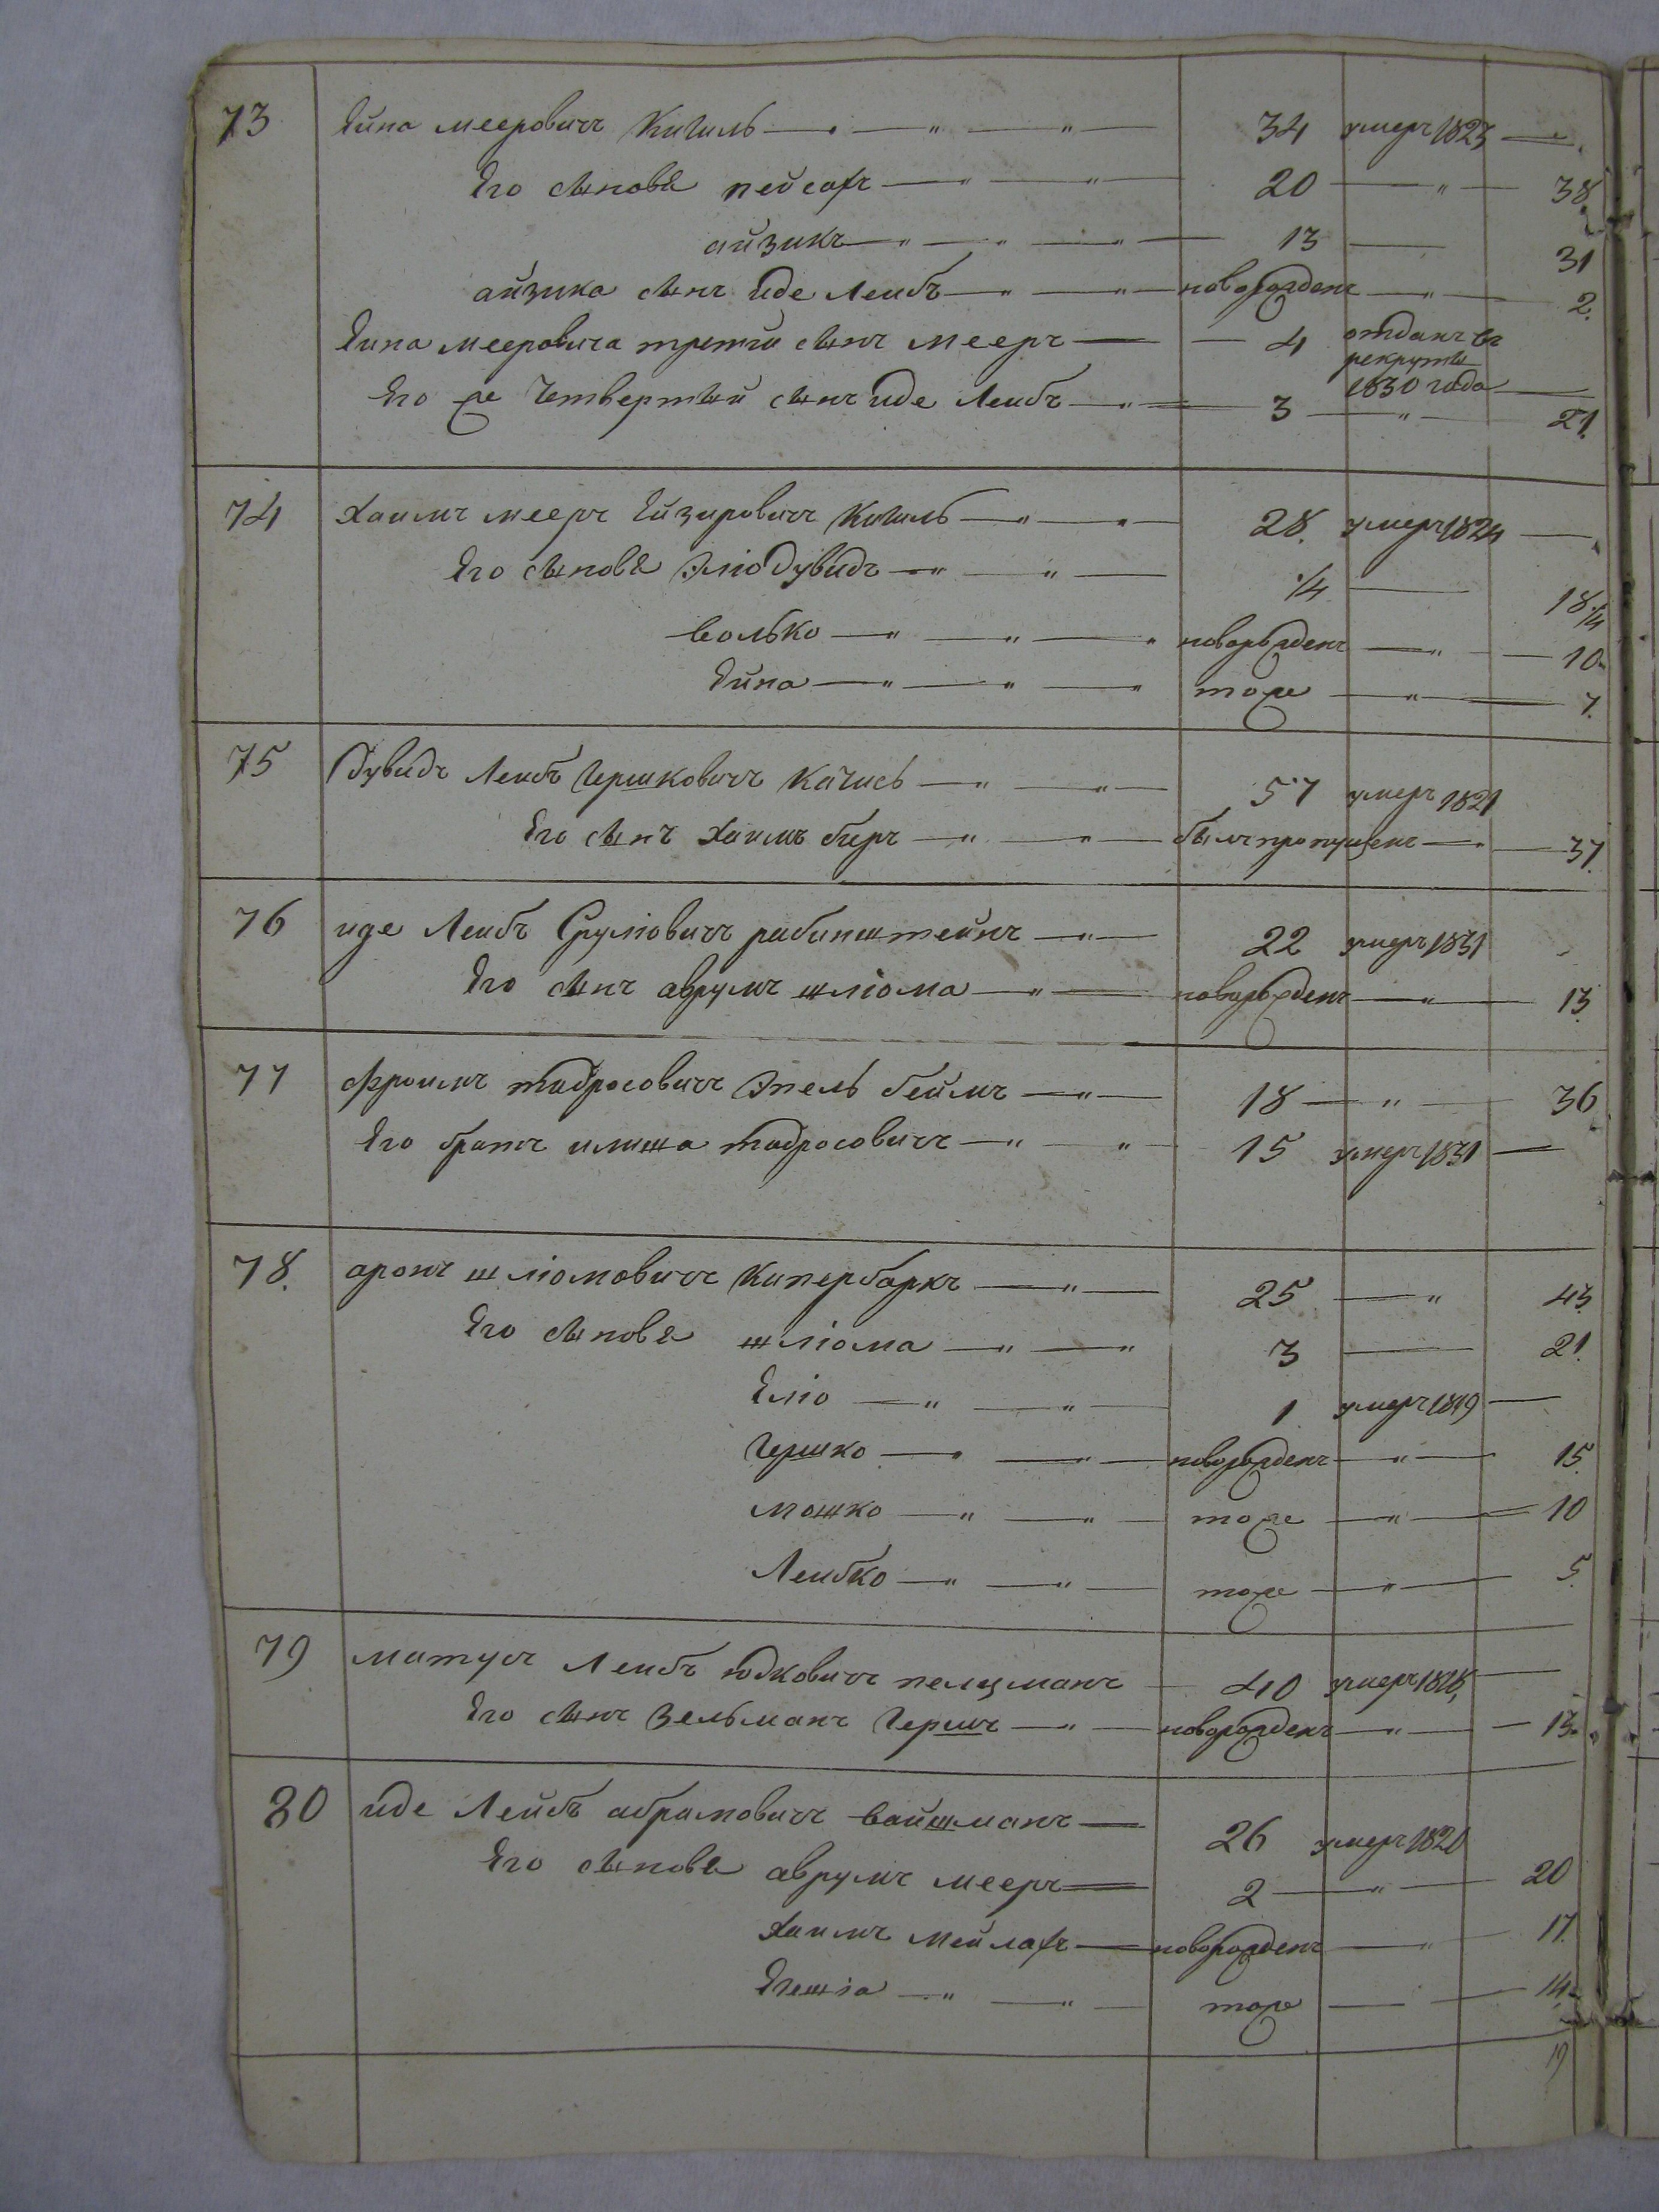 73 Ейна мееровичъ Кигиль 34 умеръ 1823
Его сынова пейсахъ 20 38
айзикъ 13 31
айзика сынъ иде Леибъ новорожденъ 2.
Еина мееровича третій сынъ мееръ 4 отданъ въ
рекруты
1830 года
Его же Четвертый сынъ иде Леибъ 3 21.
74 Хаимъ мееръ Ейзировичъ Кигиль 28. умеръ 1824
Его сынова Эліо Дувидъ 1/4 18 1/4
Волько новорожденъ 10.
Ейна тоже 7.
75 Дувидъ Леибъ Гершковичъ Качисъ 57 умеръ 1821
Его сынъ Хаимъ беръ былъ пропущенъ 37.
76 иде Леибъ Сруліовичъ рабинштейнъ 22 умеръ 1831
Его сынъ аврумъ шліома новорожденъ 13.
77 Фроимъ тадросовичъ Эпельбеимъ 18 36
Его братъ тадросовичъ 15 умеръ 1831
78. аронъ шліомовичъ Кипербаркъ 25 43
Его сынова шліома 3 21.
Еліо 1 умеръ 1819
Гершко новорожденъ 15.
мошко тоже 10
Леибко тоже 5.
79 матусъ Леибъ юдковичъ пелцманъ 40 умеръ 1818,
Его сынъ Зельманъ Гершъ новорожденъ 13.
80 иде Лейбъ абрамовичъ вайшманъ 26 умеръ 1820
Его сынова аврумъ мееръ 2 20
Хаимъ мейлахъ новорожденъ 17.
Егешіа тоже 14.
19